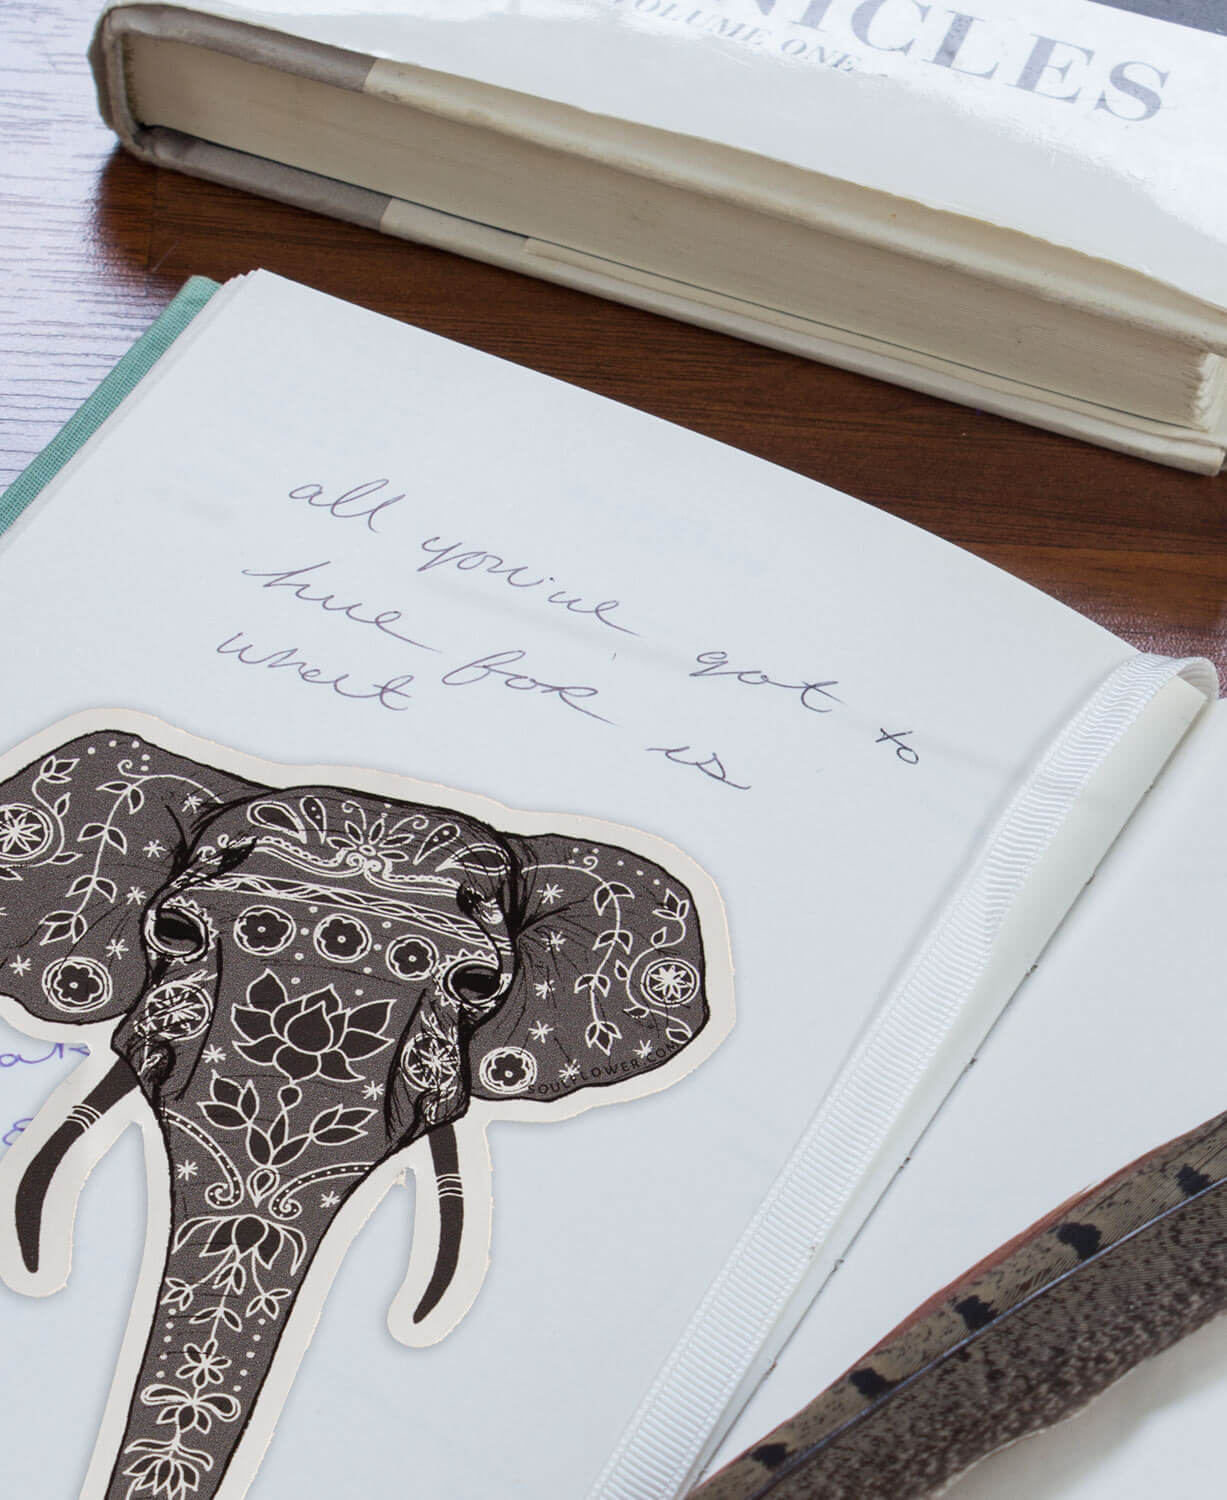 NICLES
VOLUME ONE
all you've got to
live for is
what
SOULFLOWER.COM